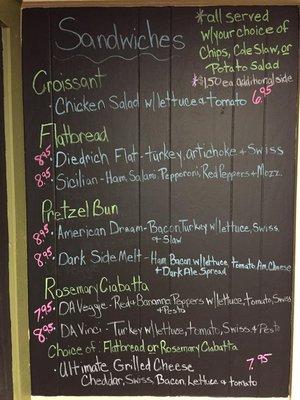 Sandwiches
*all served
w/your choice of
Chips, Cole Slaw, or
Potato Salad
*$1.50 ea. additional side
Croissant
· Chicken Salad w/lettuce + tomato 6.95
Flatbread
8.95 · Diedrich Flat - turkey, artichoke + Swiss
8.95 · Sicilian - Ham, Salami, Pepperoni, Red Peppers + Mozz.
Pretzel Bun
8.95 · American Dream - Bacon, Turkey w/lettuce, Swiss
+ Slaw
8.95 · Dark Side Melt - Ham Bacon w/lettuce, tomato, Am. Cheese
+ Dark Ale Spread
Rosemary Ciabatta
7.95 · DA Veggie - Red + Banana Peppers w/lettuce, tomato, Swiss
+ Pesto
8.95 · DA Vinci - Turkey w/lettuce, tomato, Swiss, + Pesto
Choice of: Flatbread or Rosemary Ciabatta
· Ultimate Grilled Cheese 7.95
Cheddar, Swiss, Bacon, Lettuce + tomato